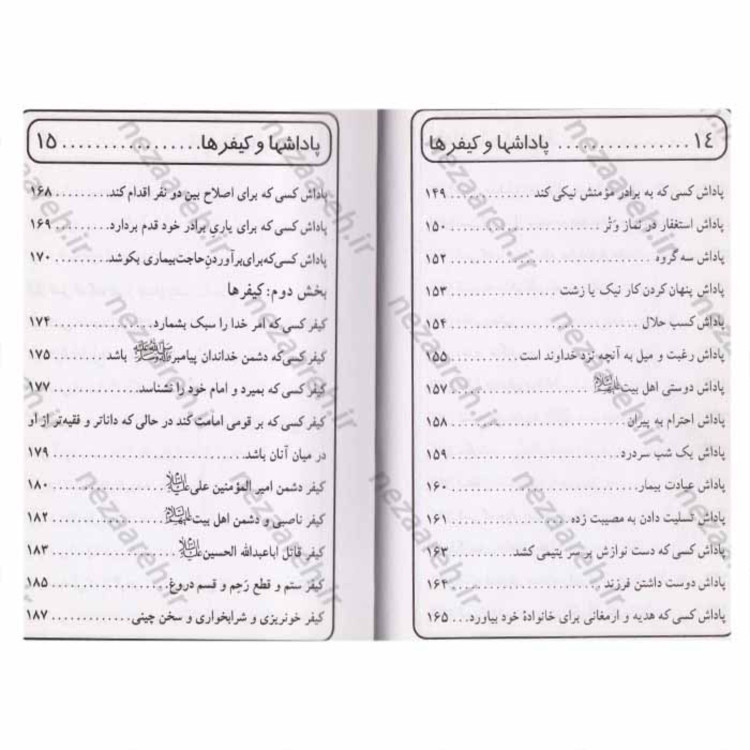 ۱۴ ................ پاداشها و کیفرها
پاداش کسی که به برادر مؤمنش نیکی کند ............ ۱۴۹
پاداش استغفار در نماز وَتْر ............ ۱۵۰
پاداش سه گروه ............ ۱۵۲
پاداش پنهان کردن کار نیک یا زشت ............ ۱۵۳
پاداش کسب حلال ............ ۱۵۴
پاداش رغبت و میل به آنچه نزد خداوند است ............ ۱۵۵
پاداش دوستی اهل بیت علیهم‌السلام ............ ۱۵۷
پاداش احترام به پیران ............ ۱۵۸
پاداش یک شب سردرد ............ ۱۵۹
پاداش عیادت بیمار ............ ۱۶۰
پاداش تسلیت دادن به مصیبت زده ............ ۱۶۱
پاداش کسی که دست نوازش بر سر یتیمی کشد ............ ۱۶۳
پاداش دوست داشتن فرزند ............ ۱۶۴
پاداش کسی که هدیه و ارمغانی برای خانوادهٔ خود بیاورد ... ۱۶۵
پاداشها و کیفرها ................ ۱۵
پاداش کسی که برای اصلاح بین دو نفر اقدام کند ......... ۱۶۸
پاداش کسی که برای یاری برادر خود قدم بردارد ......... ۱۶۹
پاداش کسی که برای برآوردنِ حاجت بیماری بکوشد ...... ۱۷۰
بخش دوم: کیفرها
کیفر کسی که امر خدا را سبک بشمارد ............ ۱۷۴
کیفر کسی که دشمن خداندان پیامبر ﷺ باشد ......... ۱۷۵
کیفر کسی که بمیرد و امام خود را نشناسد ............ ۱۷۷
کیفر کسی که بر قومی امامت کند در حالی که داناتر و فقیه‌تر از او
در میان آنان باشد ............ ۱۷۹
کیفر دشمن امیر المؤمنین علی علیه‌السلام ............ ۱۸۰
کیفر ناصبی و دشمن اهل بیت علیهم‌السلام ............ ۱۸۲
کیفر قاتل اباعبدالله الحسین علیه‌السلام ............ ۱۸۳
کیفر ستم و قطع رَحِم و قسم دروغ ............ ۱۸۵
کیفر خونریزی و شرابخواری و سخن چینی ............ ۱۸۷
nezaareh.ir